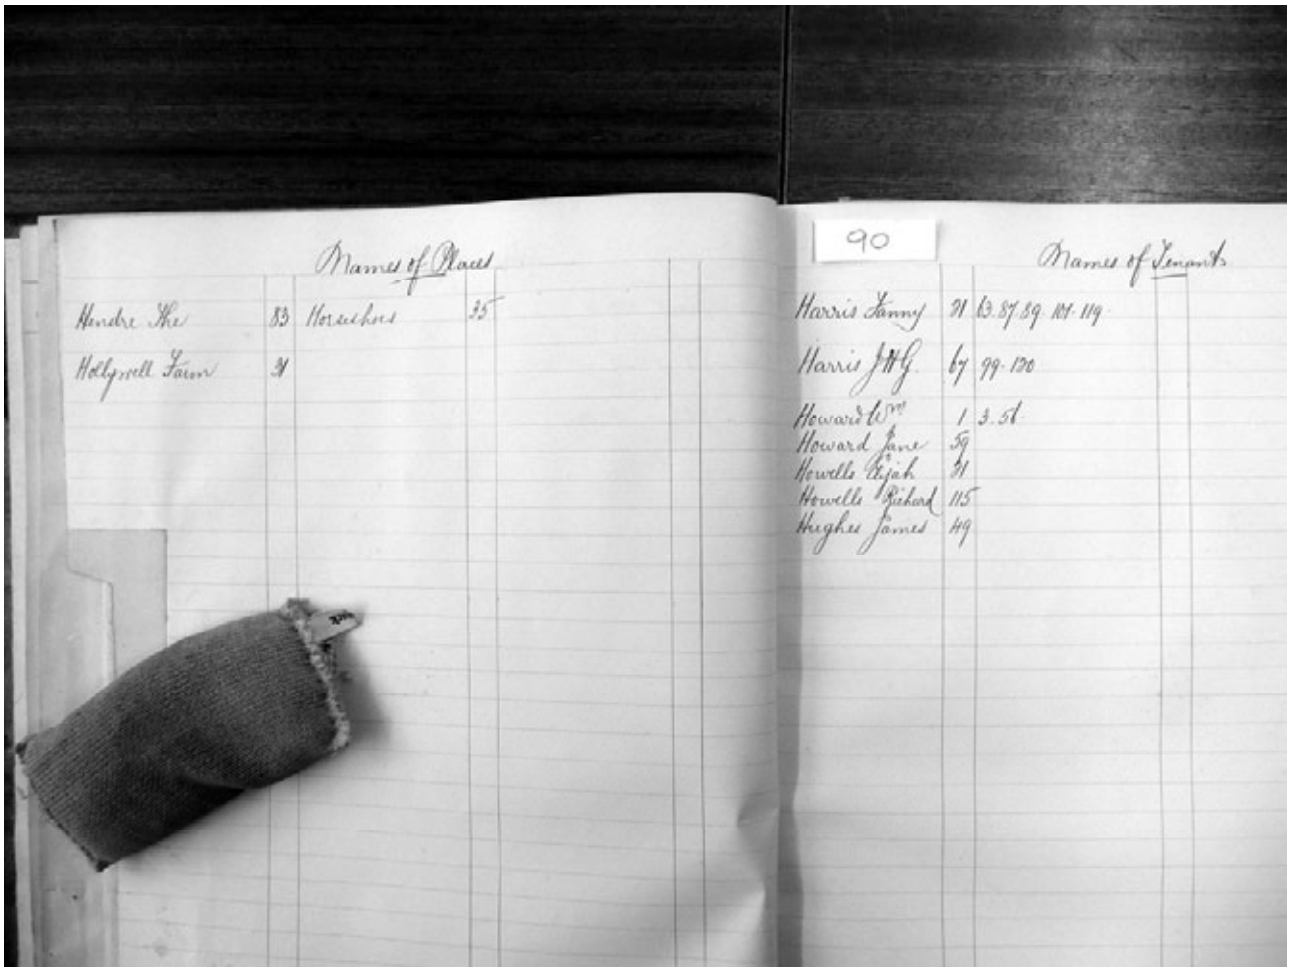 Names of Places
Hendre The 83 Horseshoes 35
Hollywell Farm 31
90
Names of Tenants
Harris Fanny 21 63. 87. 89. 101. 119.
Harris J H G. 67 99. 120
Howard Wm 1 3. 51.
Howard Jane 59
Howells Elijah 31
Howells Richard 115
Hughes James 49